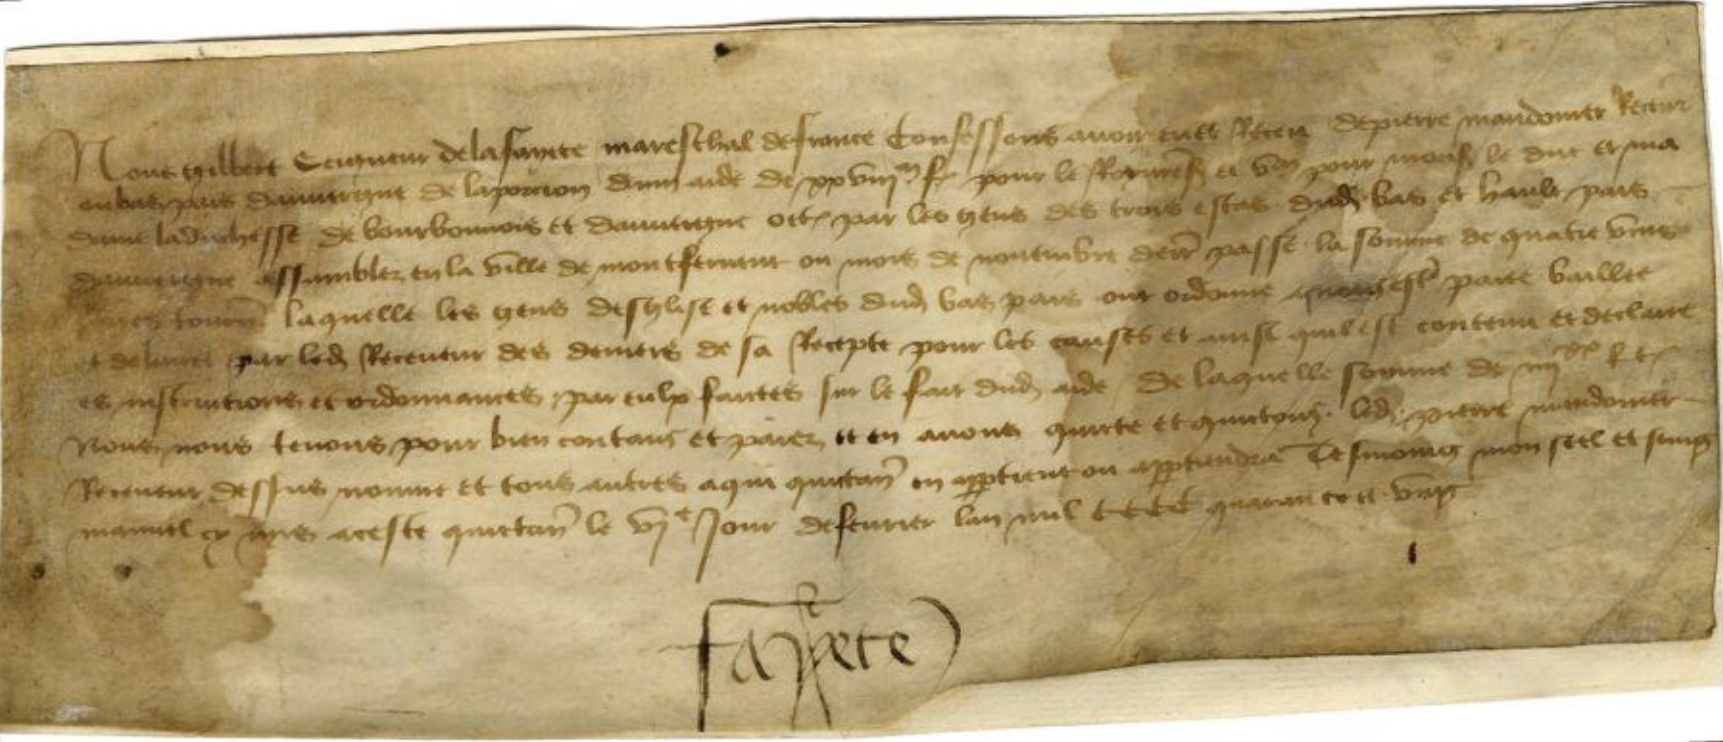 Nous Gilbert Seigneur de lafayete mareschal de france Confessons avoir eu et Receu de pierre mandonier Receveur
ou bas pais dauvergne de laporcion dun aide de xxviij m f pour le Roy nre s et vm pour mons le duc et ma
dame laduchesse de bourbonnois et dauvergne octr par les gens des trois estas dud bas et hault pais
dauvergne assemblez en la ville de montferrant ou mois de novembre derr passe la somme de quatre vins
tourn laquelle les gens deglise et nobles dud bas pais ont ordonne nous estre paiee baillee
et delivree par led Receveur des deniers de sa Recepte pour les causes et ainsi quil est contenu et declaire
es instructions et ordonnances par eulx faictes sur le fait dud aide De laquelle somme de iiij xx f t
Nous nous tenons pour bien contans et paiez et en avons quicte et quictons led pierre mandonier
Receveur dessus nomme et tous autres a qui quictan en appartient ou appartiendra Tesmoing mon seel et seing
manuel cy mis a ceste quictan le vj e Jour de fevrier lan mil CCCC quarante et
fayete